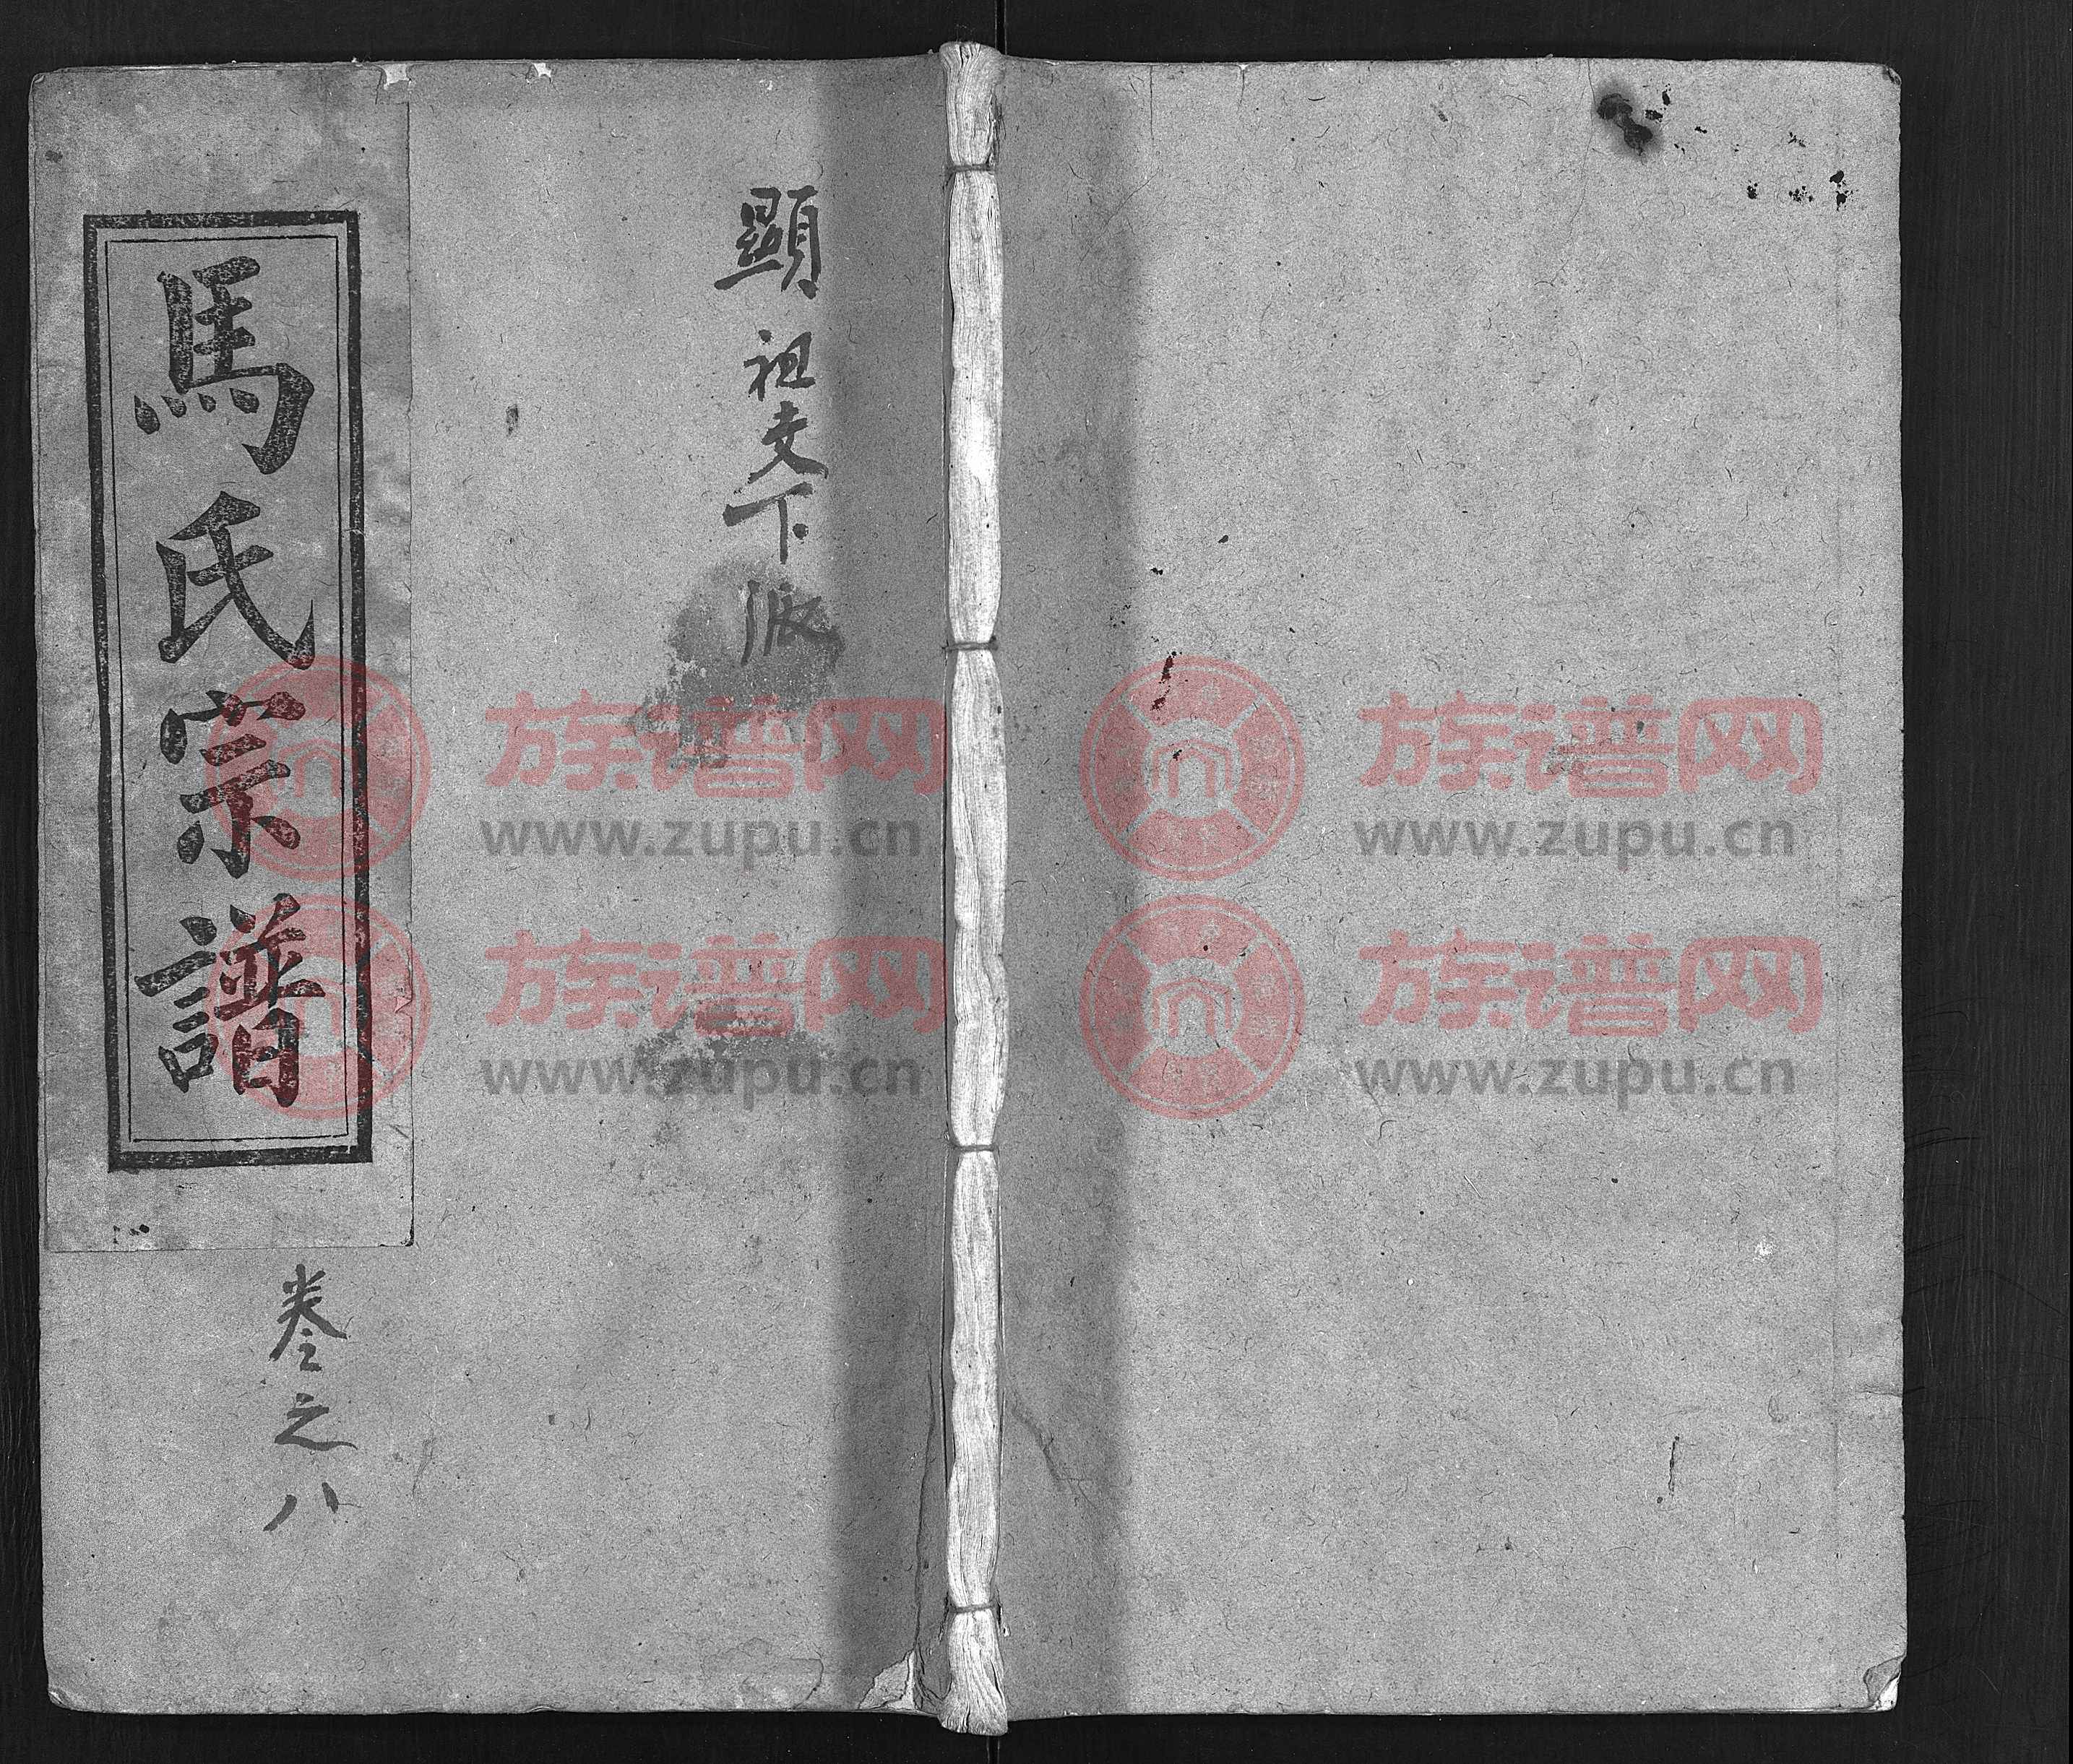 顯祖支下派
馬氏宗譜
卷之八
族谱网
www.zupu.cn
族谱网
www.zupu.cn
族谱网
www.zupu.cn
族谱网
www.zupu.cn